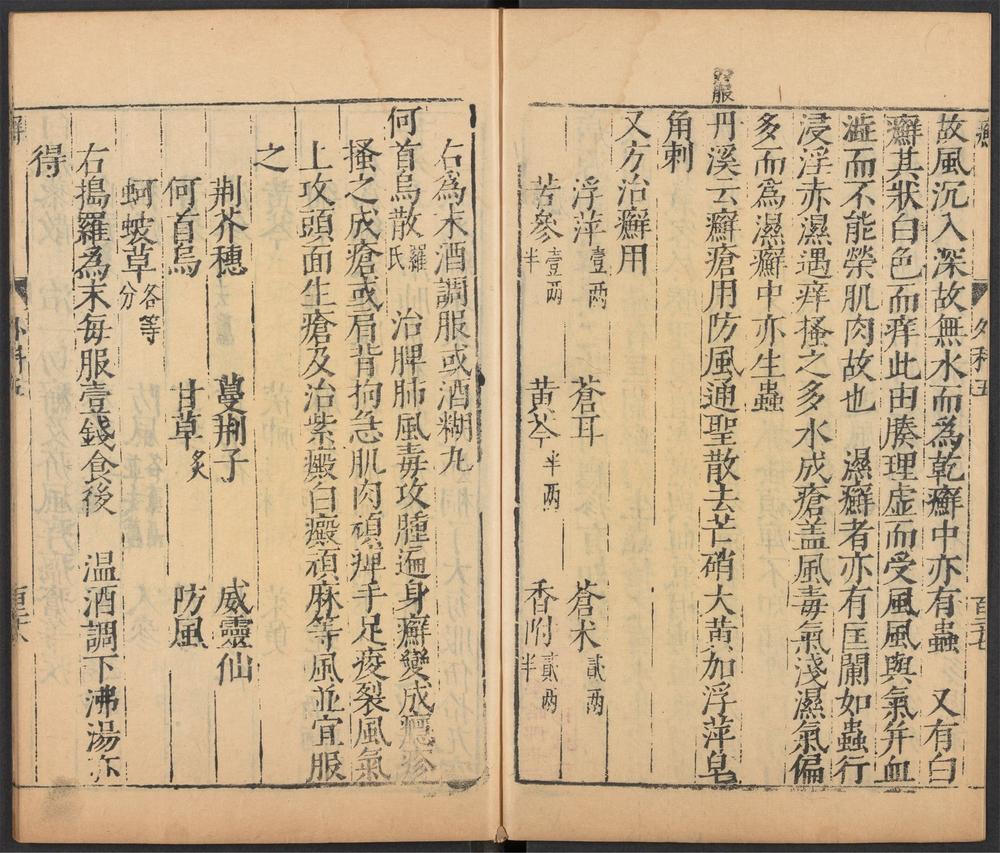 癬 外科五 百三七
故風沉入深故無水而為乾癬中亦有蟲 又有白
癬其狀白色而痒此由腠理虛而受風風與氣并血
澁而不能榮肌肉故也 濕癬者亦有匡闌如蟲行
浸浮赤濕遇痒搔之多水成瘡盖風毒氣淺濕氣偏
多而為濕癬中亦生蟲
丹溪云癬瘡用防風通聖散去芒硝大黄加浮萍皂
角刺
又方治癬用
浮萍壹兩 蒼耳 蒼术貳兩
苦參壹兩半 黄芩半兩 香附貳兩半
右為末酒調服或酒糊丸
何首烏散羅氏 治脾肺風毒攻腫遍身癬變成癮疹
搔之成瘡或肩背拘急肌肉頑痺手足皴裂風氣
上攻頭面生瘡及治紫癜白癜頑麻等風並宜服
之
荆芥穗 蔓荆子 威靈仙
何首烏 甘草炙 防風
蚵蚾草各等分
右搗羅為末每服壹錢食後 温酒調下沸湯亦
得